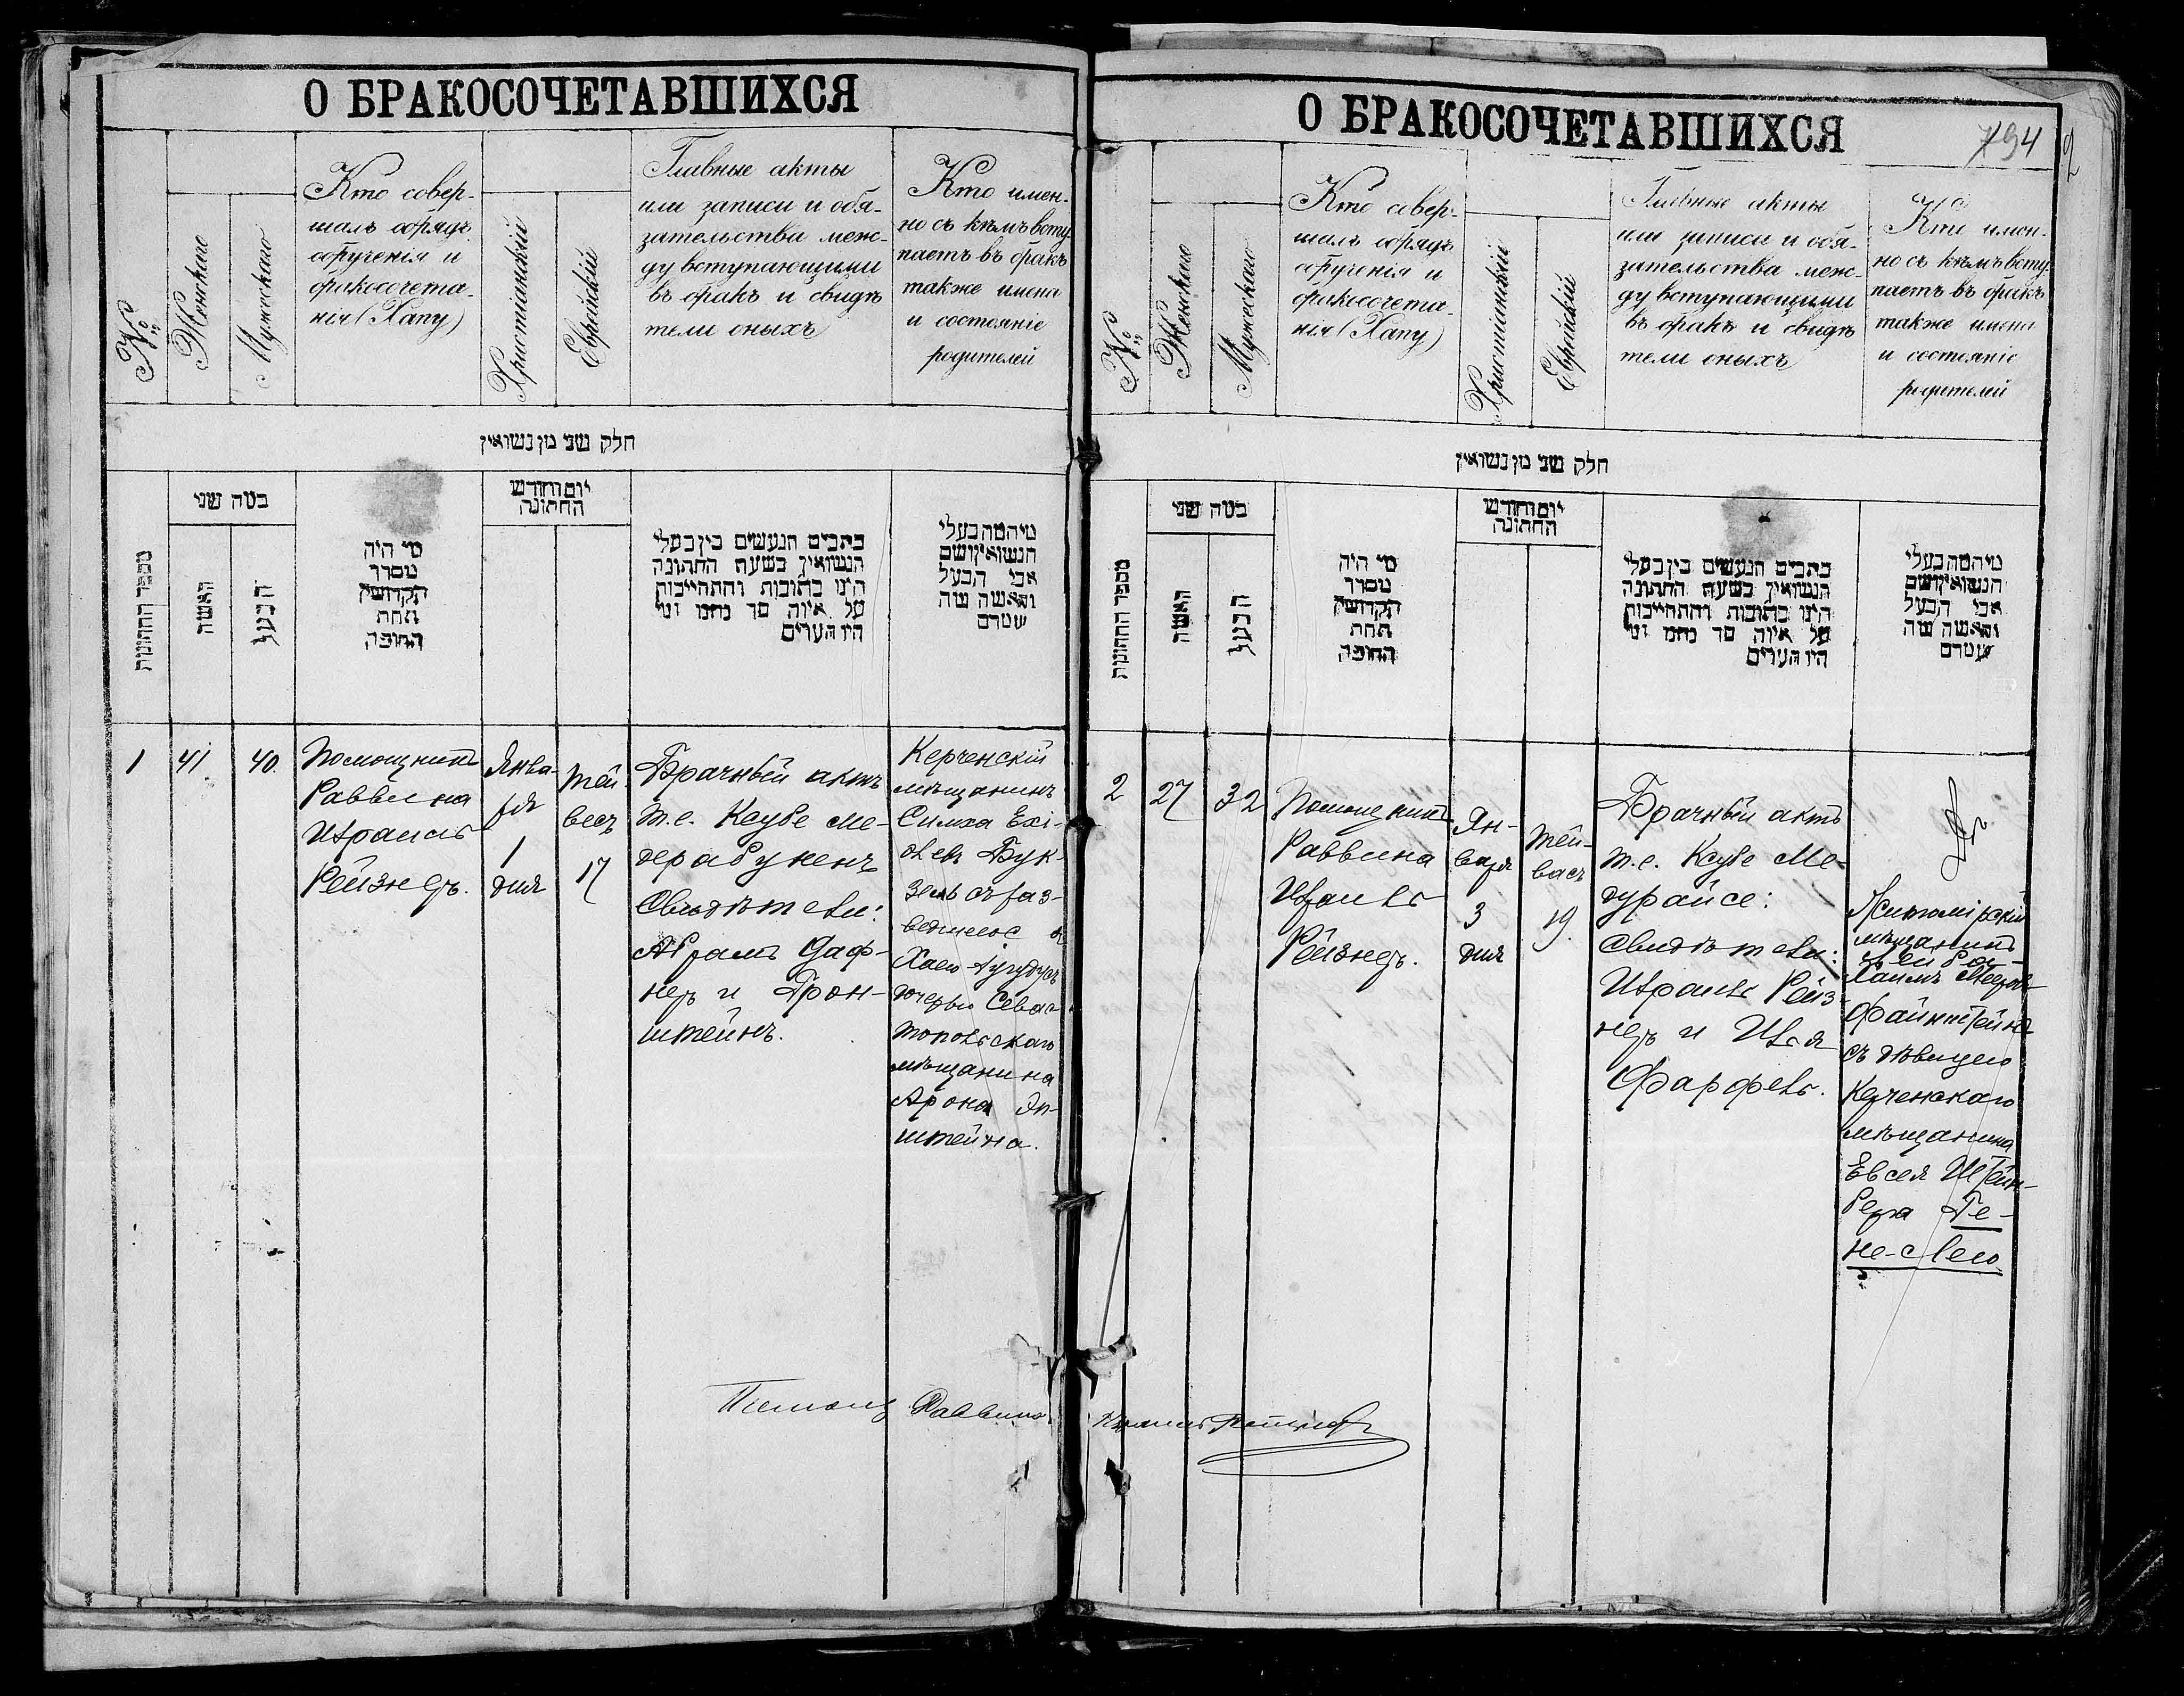 О БРАКОСОЧЕТАВШИХСЯ
№
Женскаго
Мужескаго
Кто совер-
шалъ обрядъ
обрученія и
бракосочета-
нія (Хапу)
Христіанскій
Еврейскій
Главные акты
или записи и обя-
зательства меж-
ду вступающими
въ бракъ и свидѣ
тели оныхъ
Кто имен-
но съ кѣмъ всту-
паетъ въ бракъ
также имена
и состояніе
родителей
חלק שני מן נשואין
מספר החתונות
במה שני
האשה
הבעל
מי היה
מסדר
הקדושין
תחת
החופה
יום וחודש
החתונה
כתבים הנעשים בין בעלי
הנשואין בשעת החתונה
היינו כתובות והתחייבות
על איזה סך
היו העדים
הנשואין ושם
אבי הבעל
1
41
40.
Помощникъ
Раввина
Израиль
Рейзнеръ.
Янва-
ря
1
дня
Тей-
весъ
17
Брачный актъ
т.е. Ксубе ме-
дерабуненъ
Свидѣтели:
Абрамъ Даф-
неръ и Брон-
штейнъ.
Керченскій
мѣщанинъ
Симха Ехі-
елев Бук-
зель съ раз-
ведшеюс
Хаею
дочерью Севас-
топольскаго
мѣщанина
Арона Эп-
штейна.
Помощ Раввина
О БРАКОСОЧЕТАВШИХСЯ
794
2
№
Женскаго
Мужескаго
Кто совер-
шалъ обрядъ
обрученія и
бракосочета-
нія (Хапу)
Христіанскій
Еврейскій
Главные акты
или записи и обя-
зательства меж-
ду вступающими
въ бракъ и свидѣ
тели оныхъ
Кто имен-
но съ кѣмъ всту-
паетъ въ бракъ
также имена
и состояніе
родителей
חלק שני מן נשואין
מספר החתונות
במה שני
האשה
הבעל
מי היה
מסדר
הקדושין
תחת
החופה
יום וחודש
החתונה
כתבים הנעשים בין בעלי
הנשואין בשעת החתונה
היינו כתובות והתחייבות
על איזה סך
היו העדים
הנשואין ושם
אבי הבעל
2
27
32
Помощникъ
Раввина
Израиль
Рейзнеръ.
Ян-
варя
3
дня
Тей-
васъ
19.
Брачный актъ
т.е. Ксубе Ме-
дурайсе:
Свидѣтели:
Израиль Рейз-
неръ и Илья
Фарфель.
Житомірскій
мѣщанинъ
Хаимъ
Файнштейнъ
съ дѣвицею
Керченскаго
мѣщанина
Евсея Штейн-
бера Ге-
не-Леею